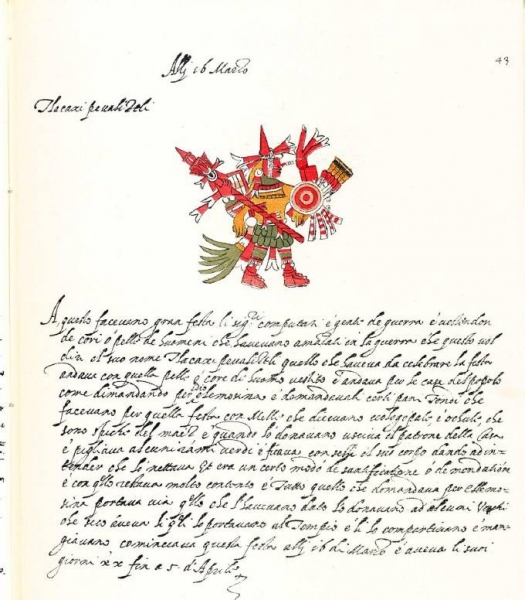 Alli 16 Marzo
49
Tlacaxi pevalistli
A questo facevano gran festa li sig.ri computati è gente de guerra è vestiendon
de cori ò pelle de huomeni che havevano amazati in la guerra che questo vol
dir el suo nome Tlacaxi pevalistli quello che haveva da celebrare la festa
andava con quella pelle è core di huomo vestito è andava per le case del popolo
come dimandando per elemosina è demandavali certi pan Tondi che
facevano per quella festa con Melli che dicevano è che
sono spichi del maiz è quando lo donavano usciva el patrone della casa
è pigliava alcuni rami verde è tirava con selli el suo corpo dando ad in-
tender che lo nettava et era un certo modo de santificatione ò de mondatione
è con q.llo restava molto contento è Tutto quello che demandava per Ellemo-
sina portava via q.llo che l'havevano dato lo donavano ad alcuni Vechi
che seco aveva li q.li lo portavano al Tempio è li lo compartivano è man-
giavano cominciava questa festa alli 16 di Marzo è aveva li suoi
giorni xx fin a 5 d'Aprile